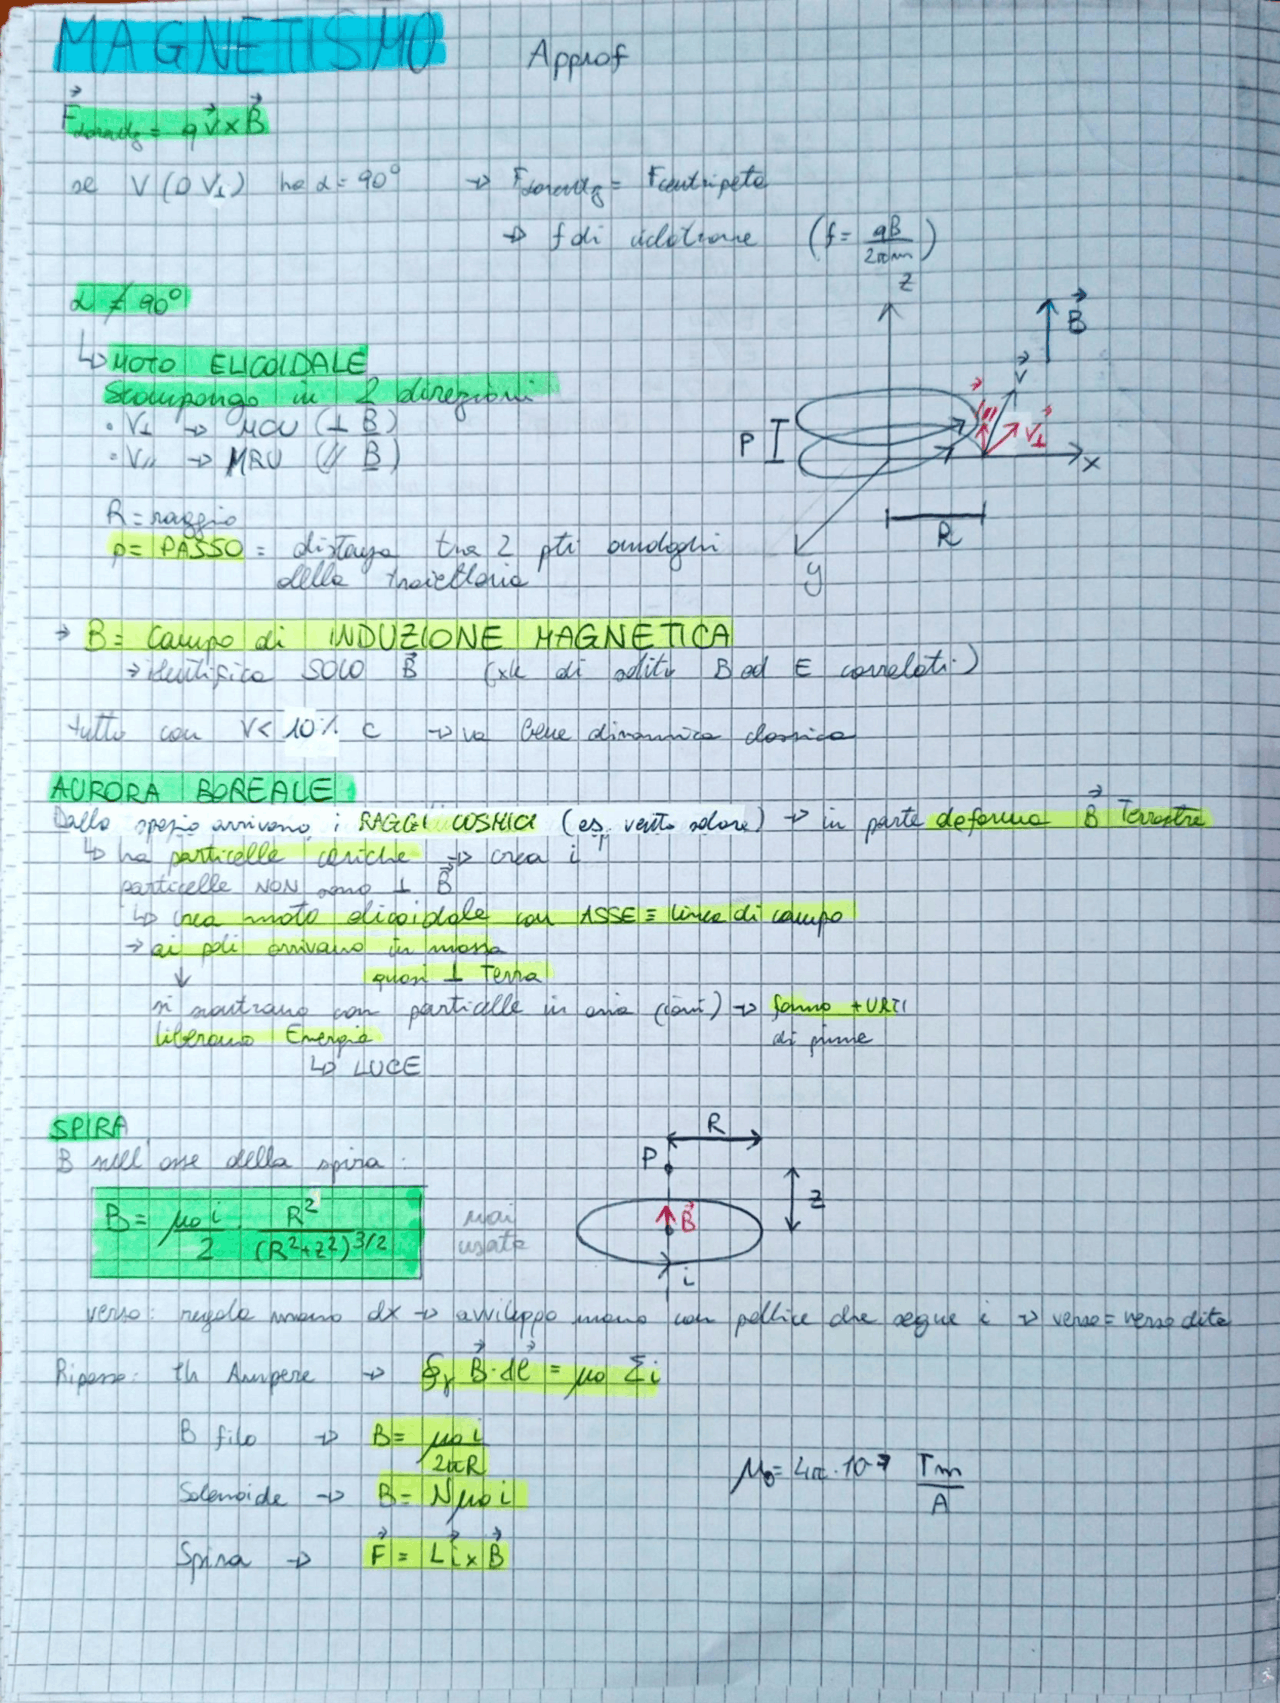 MAGNETISMO Approf
F Lorentz = q v x B
se V (o V⊥) ha α = 90° → F Lorentz = F centripeta
→ f di ciclotrone (f = qB / 2πm)
α ≠ 90°
↳ MOTO ELICOIDALE
Scompongo in 2 direzioni
• V⊥ → MCU (⊥ B)
• V// → MRU (// B)
z
B
v
V//
V⊥
P
x
R
y
R = raggio
p = PASSO = distanza tra 2 pti analoghi
della traiettoria
→ B = campo di INDUZIONE MAGNETICA
→ identifica SOLO B (xk di solito B ed E correlati)
tutto con V < 10% c → va bene dinamica classica
AURORA BOREALE
Dallo spazio arrivano i RAGGI COSMICI (es. vento solare) → in parte deforma B Terrestre
↳ ha particelle cariche → crea i
particelle NON sono ⊥ B
↳ crea moto elicoidale con ASSE ≡ linea di campo
→ ai poli arrivano in massa
quasi ⊥ Terra
↓
si scontrano con particelle in aria (ioni) → fanno + URTI
liberano Energia di prima
↳ LUCE
SPIRA
B nell'asse della spira:
B = μ0 i / 2 · R² / (R²+z²)^3/2
mai
usata
R
P
z
B
i
verso: regola mano dx → avviluppo mano con pollice che segue i → verso = verso dita
Ripasso: th Ampere → ∮γ B · dl = μ0 Σi
B filo → B = μ0 i / 2πR
μ0 = 4π · 10⁻⁷ Tm / A
Solenoide → B = N μ0 i
Spira → F = L i x B